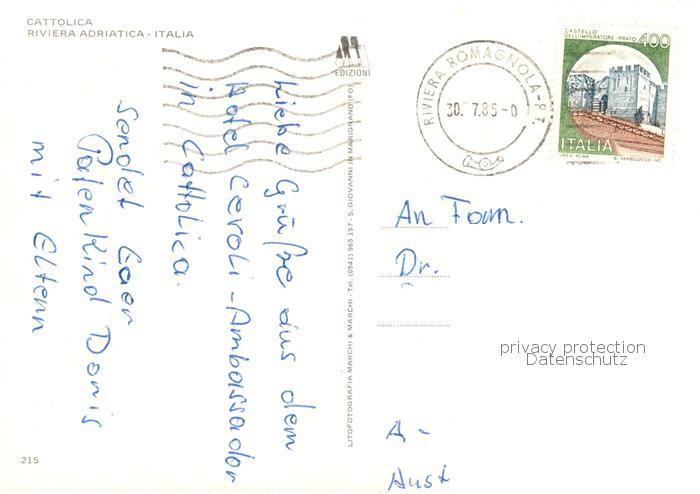 CATTOLICA
RIVIERA ADRIATICA - ITALIA
EDIZIONI
RIVIERA ROMAGNOLA P.T.
30. 7.85-0
CASTELLO
DELL'IMPERATORE - PRATO
400
ITALIA
I.P.Z.S. ROMA
Liebe Grüße aus dem
Hotel Ceroli-Ambassador
in Cattolica.
Sendet Euer
Patenkind Denis
mit Eltern
LITOFOTOGRAFIA MARCHI & MARCHI - Tel. (0541) 965 157 - S. GIOVANNI IN MARIGNANO (FO)
An Fam.
Dr.
privacy protection
Datenschutz
A -
Aust
215